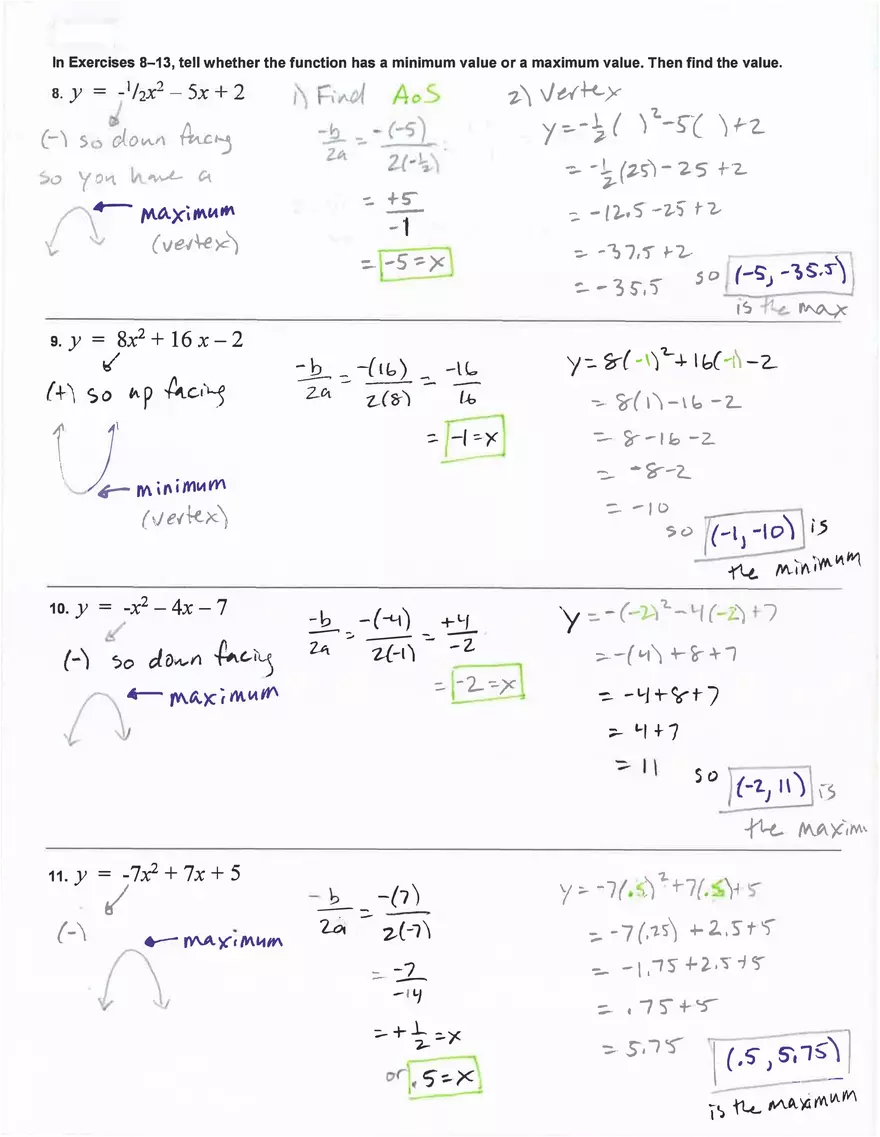 In Exercises 8–13, tell whether the function has a minimum value or a maximum value. Then find the value.
8. y = -1/2x² – 5x + 2
(-) so down facing
so you have a
maximum
(vertex)
1) Find AoS
-b/2a = -(-5)/2(-½)
= +5/-1
= -5 = x
2) Vertex
y = -½( )² -5( ) +2
= -½(25) - 25 +2
= -12.5 -25 +2
= -37.5 +2
= -35.5
so (-5, -35.5)
is the max
9. y = 8x² + 16 x – 2
(+) so up facing
minimum
(vertex)
-b/2a = -(16)/2(8) = -16/16
= -1 = x
y = 8(-1)² + 16(-1) -2
= 8(1) -16 -2
= 8 -16 -2
= -8 -2
= -10
so (-1, -10) is
the minimum
10. y = -x² – 4x – 7
(-) so down facing
maximum
-b/2a = -(-4)/2(-1) = +4/-2
= -2 = x
y = -(-2)² -4(-2) +7
= -(4) +8 +7
= -4+8+7
= 4+7
= 11
so (-2, 11) is
the maxim
11. y = -7x² + 7x + 5
(-)
maximum
-b/2a = -(7)/2(-7)
= -7/-14
= +½ = x
or .5 = x
y = -7(.5)² +7(.5)+5
= -7(.25) +2.5+5
= -1.75 +2.5 +5
= .75 +5
= 5.75
(.5, 5.75)
is the maximum